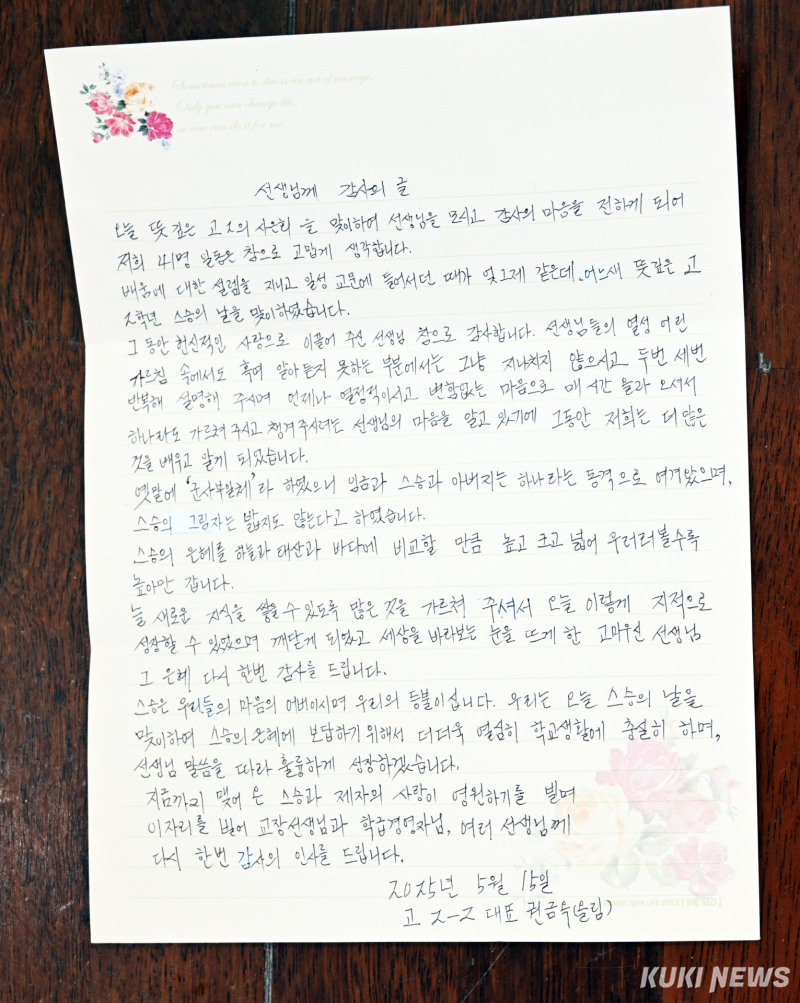 Sometimes even to live is an act of courage.
Only you can change life.
no one can do it for me.
선생님께 감사의 글
오늘 뜻 깊은 고2의 사은회 를 맞이하여 선생님을 모시고 감사의 마음을 전하게 되어
저희 41명 일동은 참으로 고맙게 생각합니다.
배움에 대한 설렘을 지니고 일성 교문에 들어서던 때가 엊그제 같은데, 어느새 뜻깊은 고
2학년 스승의 날을 맞이하였습니다.
그 동안 헌신적인 사랑으로 이끌어 주신 선생님 참으로 감사합니다. 선생님들의 열성 어린
가르침 속에서도 혹여 알아듣지 못하는 부분에서는 그냥 지나치지 않으시고 두번 세번
반복해 설명해 주시며 언제나 열정적이시고 변함없는 마음으로 매 시간 올라 오셔서
하나라도 가르쳐 주시고 챙겨주시려는 선생님의 마음을 알고 있기에 그동안 저희는 더 많은
것을 배우고 알게 되었습니다.
옛말에 '군사부일체'라 하였으니 임금과 스승과 아버지는 하나라는 동격으로 여겨왔으며,
스승의 그림자는 밟지도 않는다고 하였습니다.
스승의 은혜를 하늘과 태산과 바다에 비교할 만큼 높고 크고 넓어 우러러볼수록
높아만 갑니다.
늘 새로운 지식을 쌓을 수 있도록 많은 것을 가르쳐 주셔서 오늘 이렇게 지적으로
성장할 수 있었으며 깨닫게 되었고 세상을 바라보는 눈을 뜨게 한 고마우신 선생님
그 은혜 다시 한번 감사를 드립니다.
스승은 우리들의 마음의 어버이시며 우리의 등불이십니다. 우리는 오늘 스승의 날을
맞이하여 스승의 은혜에 보답하기 위해서 더더욱 열심히 학교생활에 충실히 하며,
선생님 말씀을 따라 훌륭하게 성장하겠습니다.
지금까지 맺어 온 스승과 제자의 사랑이 영원하기를 빌며
이자리를 빌어 교장선생님과 학급경영자님, 여러 선생님께
다시 한번 감사의 인사를 드립니다.
2025년 5월 15일
고 2-2 대표 권금옥(올림)
NEW LIFE STYLE [ THE RED ]
KUKI NEWS